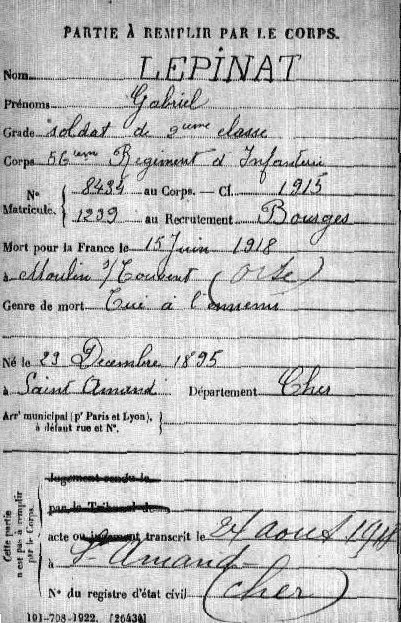 PARTIE À REMPLIR PAR LE CORPS.
Nom LEPINAT
Prénoms Gabriel
Grade soldat de 2eme classe
Corps 56eme Régiment d'Infanterie
N° Matricule. { 8434 au Corps. — Cl. 1915
1239 au Recrutement Bourges
Mort pour la France le 15 Juin 1918
à Moulin s/Touvent (Oise)
Genre de mort Tué à l'ennemi
Né le 23 Décembre 1895
à Saint Amand Département Cher
Arrt municipal (pr Paris et Lyon), à défaut rue et N°. }
Cette partie n'est pas à remplir par le Corps.
Jugement rendu le
par le Tribunal de
acte ou jugement transcrit le 24 août 1918
à St Amand
N° du registre d'état civil (Cher)
101-708-1922. [26434]